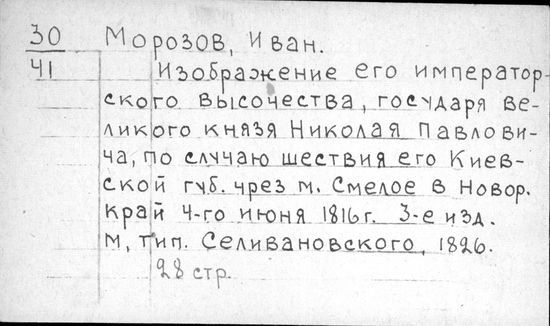 30 Морозов, Иван.
41 Изображение его император-
ского высочества, государя ве-
ликого князя Николая Павлови-
ча, по случаю шествия его Киев-
ской губ. чрез м. Смелое в Новор.
край 4-го июня 1816 г. 3-е изд.
М, тип. Селивановского, 1826.
28 стр.